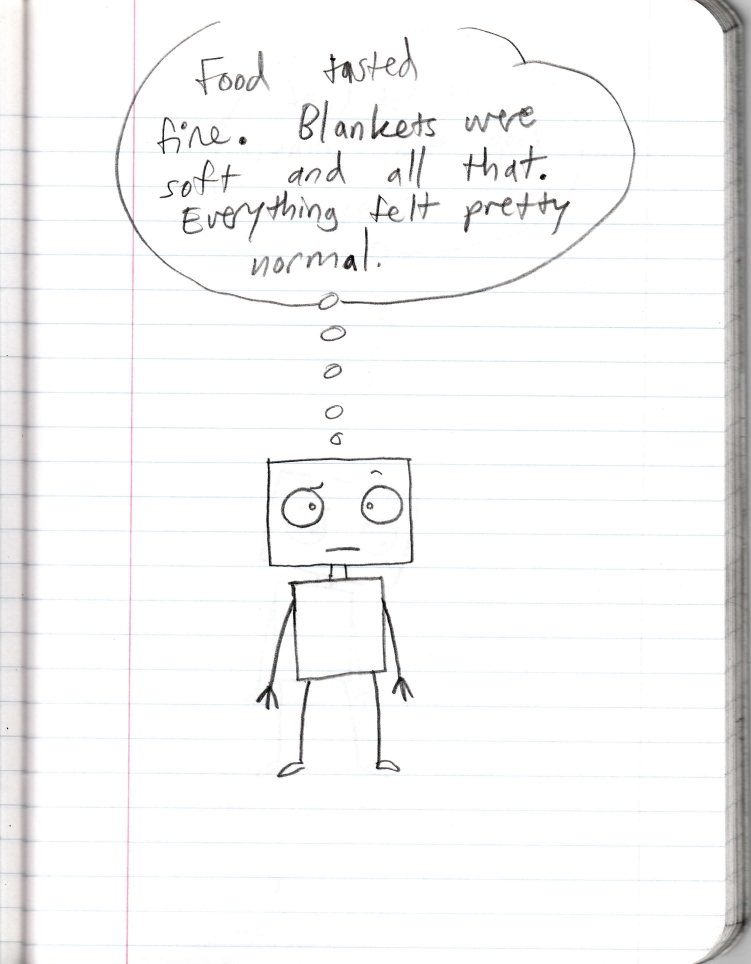 Food tasted
fine. Blankets were
soft and all that.
Everything felt pretty
normal.